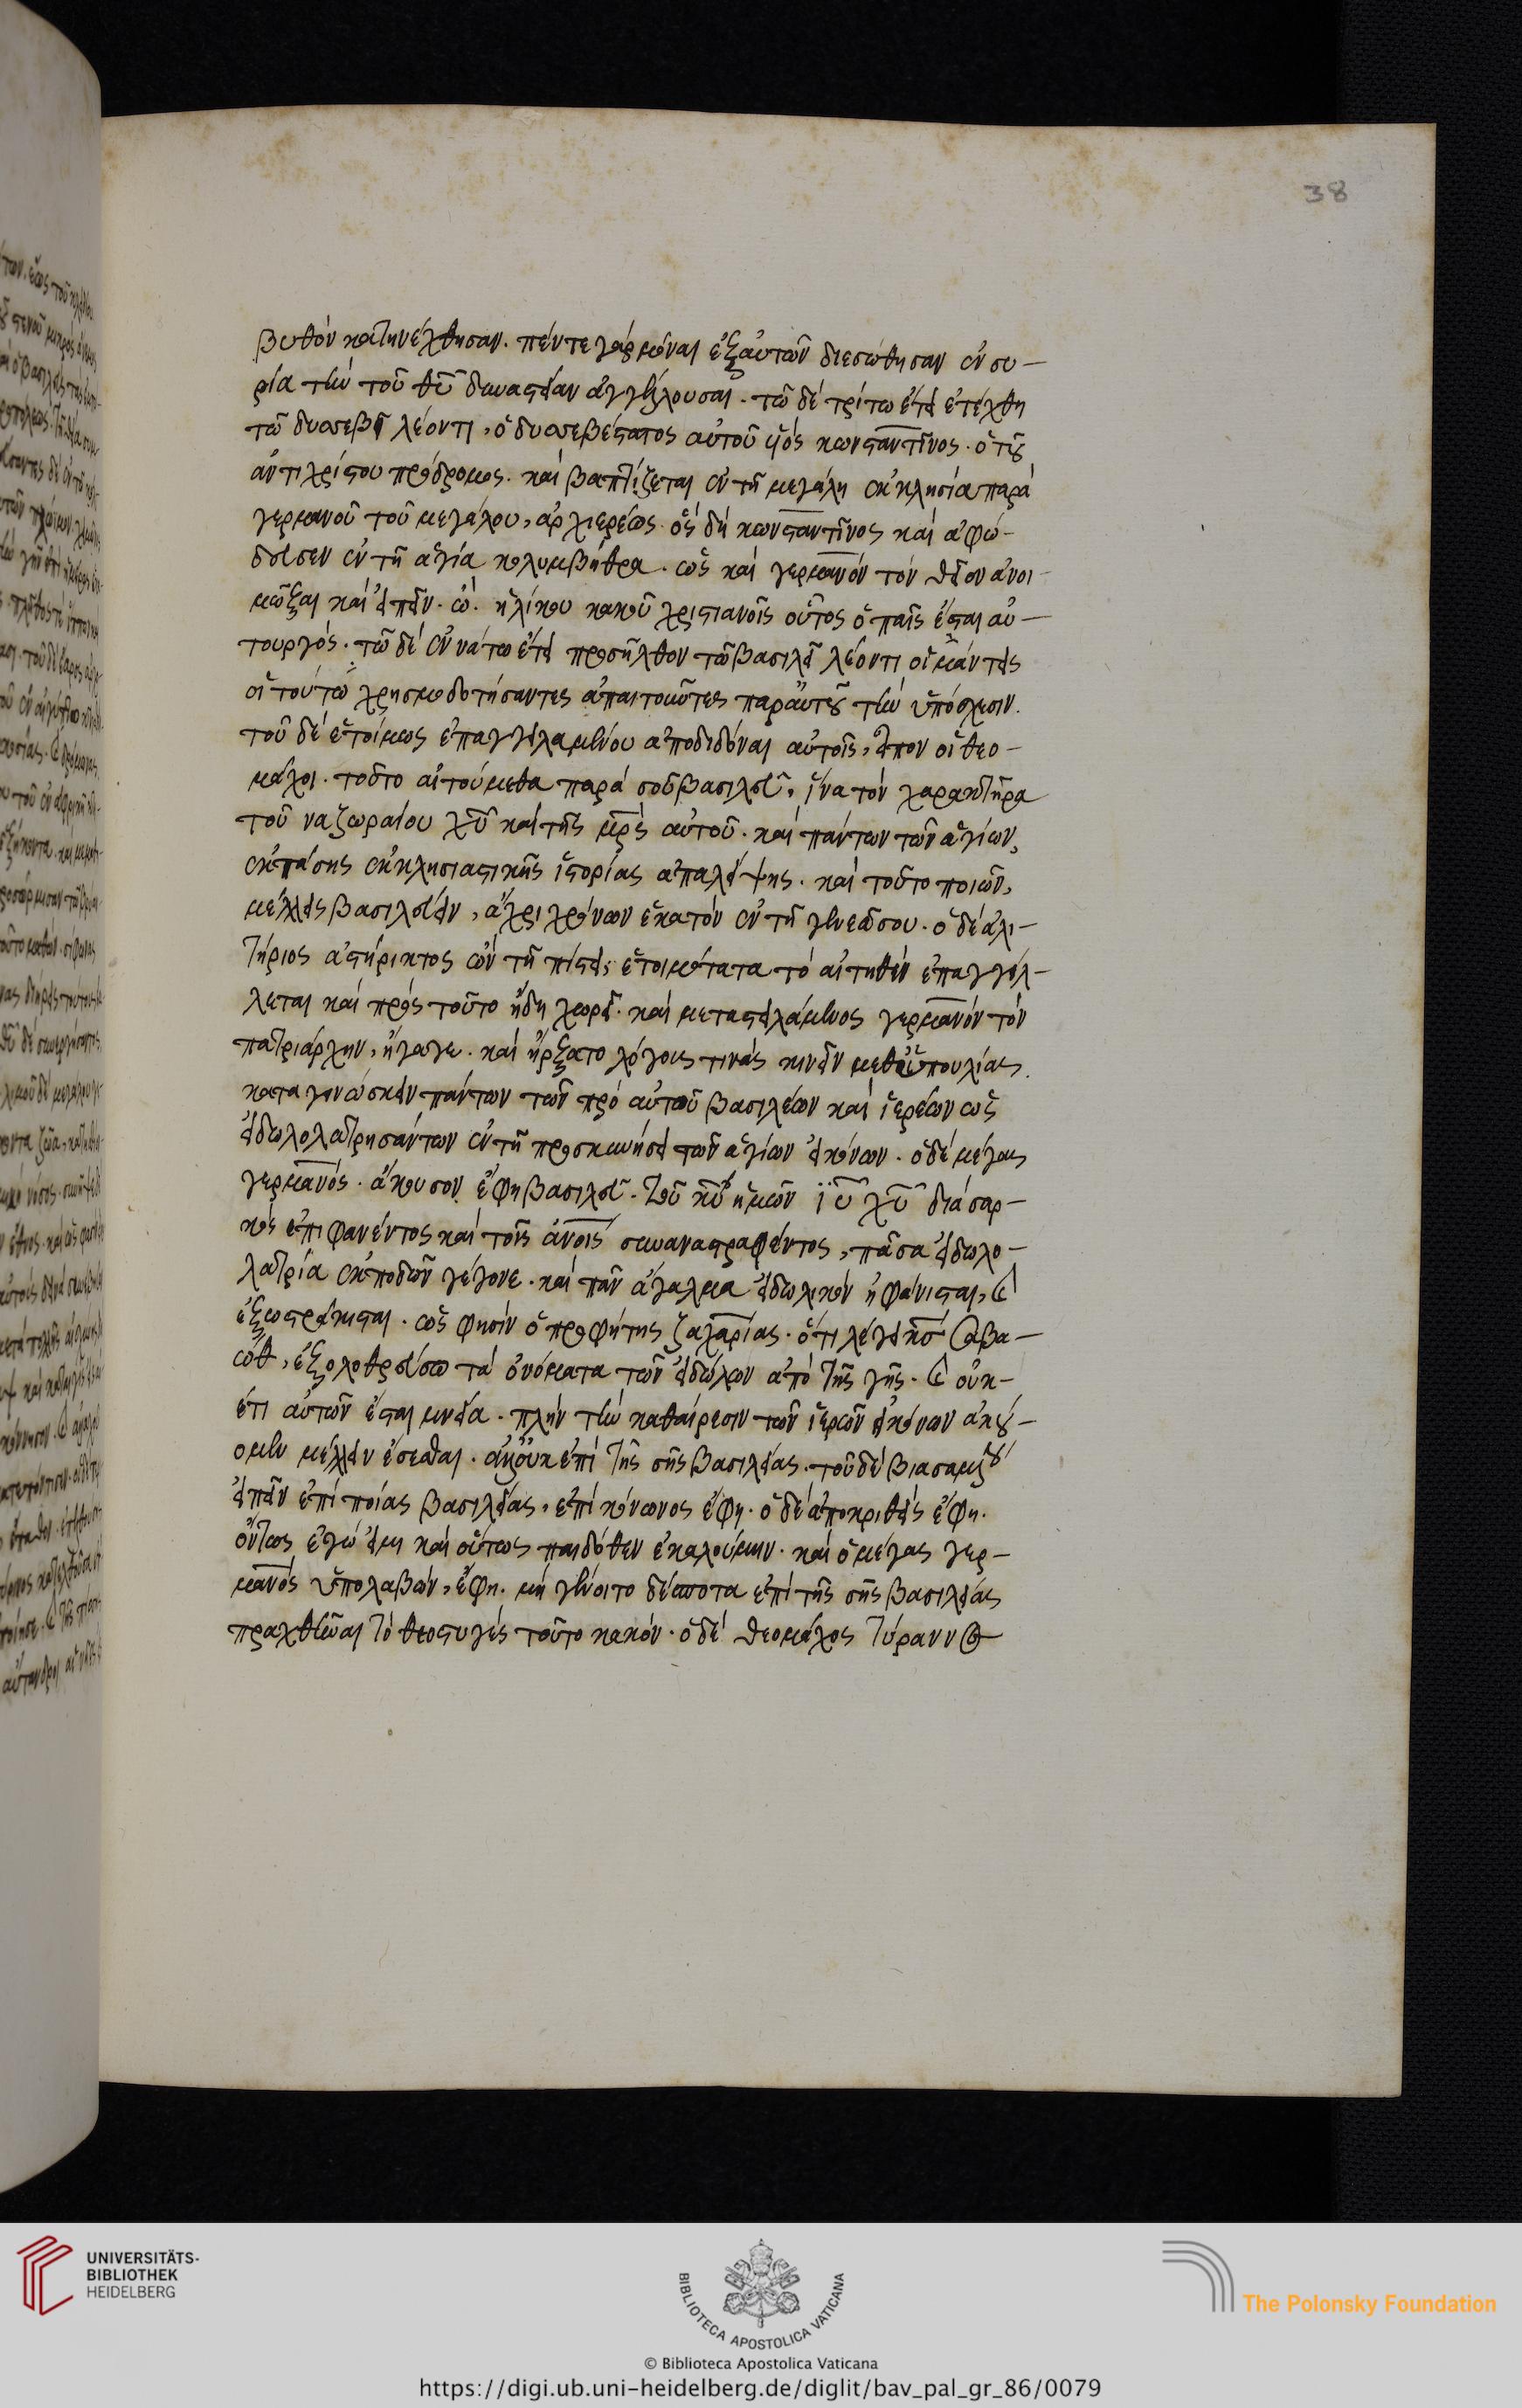 38
βυθὸν κατηνέχθησαν. πέντε γὰρ μόναι ἐξ αὐτῶν διεσώθησαν ἐν συ-
ρία τὴν τοῦ θῦ δυναστείαν ἀγγέλλουσαι. τῶ δὲ τρίτω ἔτει ἐτέχθη
τῶ δυσσεβεῖ λέοντι, ὁ δυσσεβέστατος αὐτοῦ υἱὸς κωνσταντῖνος. ὁ τοῦ
ἀντιχρίστου πρόδρομος. καὶ βαπτίζεται ἐν τῆ μεγάλη ἐκκλησία παρὰ
γερμανοῦ τοῦ μεγάλου, ἀρχιερέως. ὃς δὴ κωνσταντῖνος καὶ ἀφώ-
δευσεν ἐν τῆ ἁγία κολυμβήθρα. ὡς καὶ γερμανὸν τὸν θεῖον ἀνοι-
μῶξαι καὶ εἰπεῖν. ὢ. ἡλίκου κακοῦ χριστιανοῖς οὗτος ὁ παῖς ἔσται αὐ-
τουργός. τῶ δὲ ἐννάτω ἔτει προσῆλθον τῶ βασιλεῖ λέοντι οἱ μάντεις
οἱ τούτω χρησμοδοτήσαντες ἀπαιτοῦντες παρ' αὐτοῦ τὴν ὑπόσχεσιν.
τοῦ δὲ ἑτοίμως ἐπαγγειλαμένου ἀποδιδόναι αὐτοῖς, εἶπον οἱ θεο-
μάχοι. τοῦτο αἰτούμεθα παρὰ σοῦ βασιλεῦ, ἵνα τὸν χαρακτῆρα
τοῦ ναζωραίου χῦ καὶ τῆς μρς αὐτοῦ. καὶ πάντων τῶν ἁγίων,
ἐκ πάσης ἐκκλησιαστικῆς ἱστορίας ἀπαλείψης. καὶ τοῦτο ποιῶν,
μέλλεις βασιλεύειν, ἄχρι χρόνων ἑκατὸν ἐν τῆ γενεᾶ σου. ὁ δὲ ἀλι-
τήριος ἀστήρικτος ὢν τῆ πίστει, ἑτοιμότατα τὸ αἰτηθὲν ἐπαγγέλ-
λεται καὶ πρὸς τοῦτο ἤδη χωρεῖ. καὶ μεταστειλάμενος γερμανὸν τὸν
πατριάρχην, ἤγαγε. καὶ ἤρξατο λόγους τινὰς κινεῖν μεθ' ὑπουλίας.
καταγινώσκειν πάντων τῶν πρὸ αὐτοῦ βασιλέων καὶ ἱερέων ὡς
εἰδωλολατρησάντων ἐν τῆ προσκυνήσει τῶν ἁγίων εἰκόνων. ὁ δὲ μέγας
γερμανός. ἄκουσον ἔφη βασιλεῦ. τοῦ κῦ ἡμῶν ἰῦ χῦ διὰ σαρ-
κὸς ἐπιφανέντος καὶ τοῖς ἀνοις συναναστραφέντος, πᾶσα εἰδωλο-
λατρία ἐκποδὼν γέγονε. καὶ πᾶν ἄγαλμα εἰδωλικὸν ἠφάνισται, καὶ
ἐξωστράκισται. ὥς φησιν ὁ προφήτης ζαχαρίας. ὅτι λέγει κς σαβα-
ώθ, ἐξολοθρεύσω τὰ ὀνόματα τῶν εἰδώλων ἀπὸ τῆς γῆς. καὶ οὐκ-
έτι αὐτῶν ἔσται μνεία. πλὴν τὴν καθαίρεσιν τῶν ἱερῶν εἰκόνων ἀκού-
ομεν μέλλειν ἔσεσθαι. ἀλλ' οὐκ ἐπὶ τῆς σῆς βασιλείας. τοῦ δὲ βιασαμένου
εἰπεῖν ἐπὶ ποίας βασιλείας, ἐπὶ κόνωνος ἔφη. ὁ δὲ ἀποκριθεὶς ἔφη.
ὄντως ἐγώ εἰμι καὶ οὕτως παιδόθεν ἐκαλούμην. καὶ ὁ μέγας γερ-
μανὸς ὑπολαβών, ἔφη. μὴ γένοιτο δέσποτα ἐπὶ τῆς σῆς βασιλείας
πραχθῆναι τὸ θεοστυγὲς τοῦτο κακόν. ὁ δὲ θεομάχος τύραννος
UNIVERSITÄTS-
BIBLIOTHEK
HEIDELBERG
BIBLIOTECA APOSTOLICA VATICANA
The Polonsky Foundation
© Biblioteca Apostolica Vaticana
https://digi.ub.uni-heidelberg.de/diglit/bav_pal_gr_86/0079